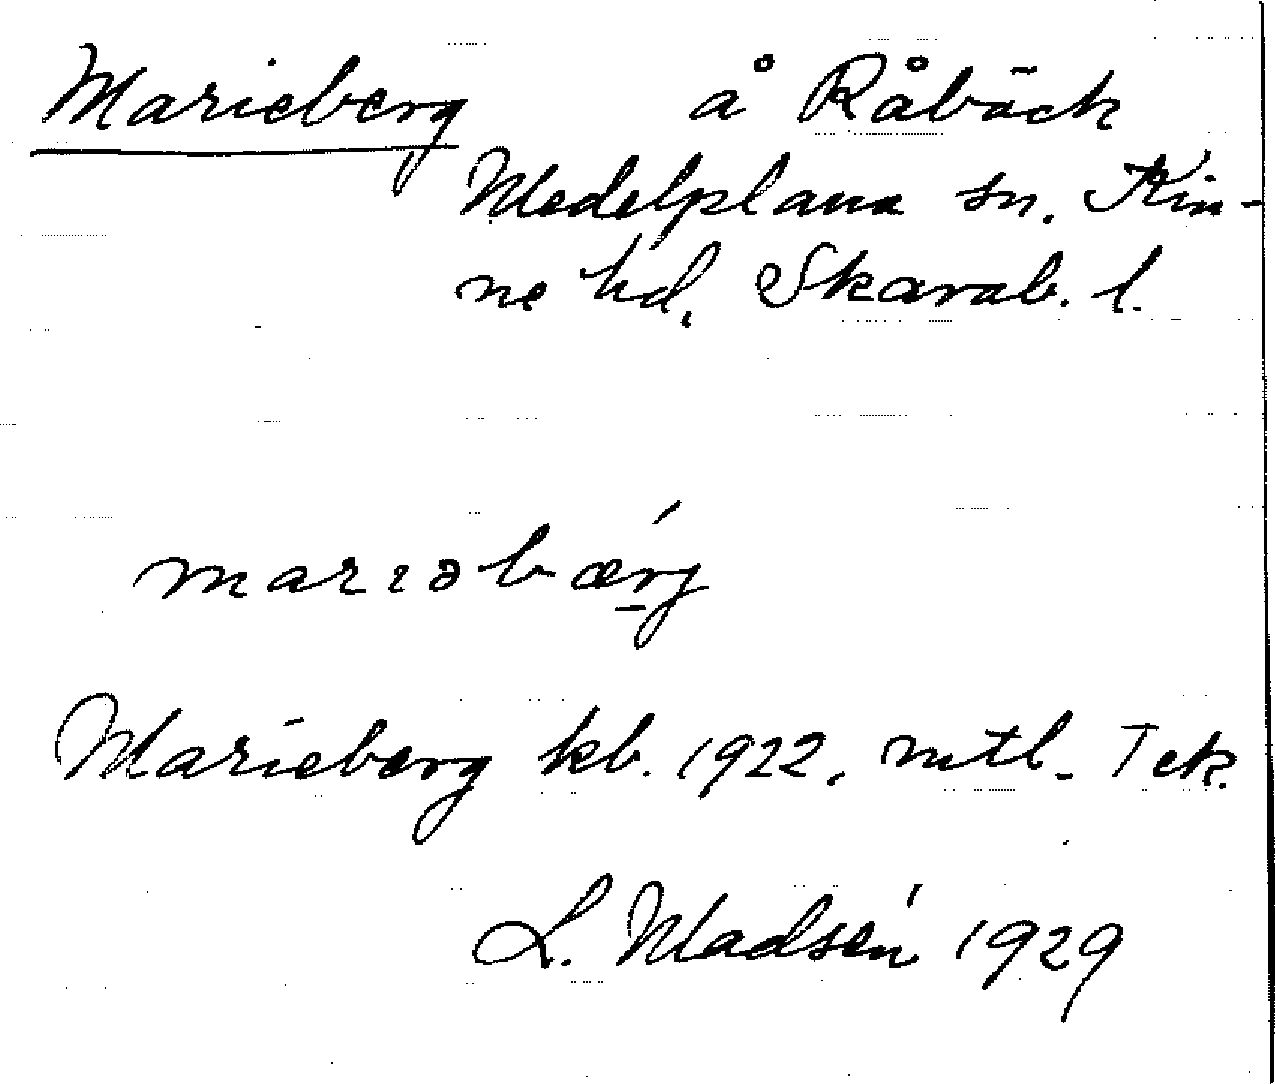 Marieberg å Råbäck
Medelplana sn. Kin-
ne hd. Skarab. l.
marıəbærj́
Marieberg kb. 1922. mtl. Tek.
L. Madsén 1929